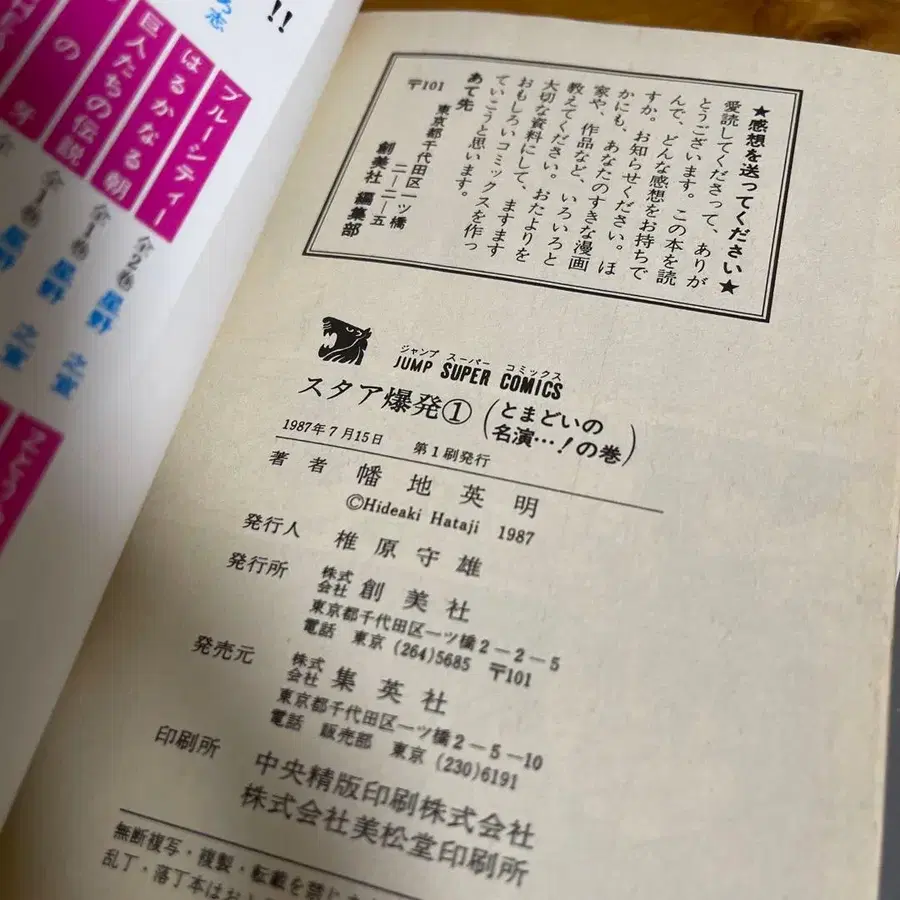 ★感想を送ってください★
愛読してくださって、ありが
とうございます。この本を読
んで、どんな感想をお持ちで
すか。お知らせください。ほ
かにも、あなたのすきな漫画
家や、作品など、いろいろと
教えてください。おたよりを
大切な資料にして、ますます
おもしろいコミックスを作っ
ていこうと思います。
あて先
〒101
東京都千代田区一ツ橋
二ー二ー五
創美社 編集部
ジャンプ スーパー コミックス
JUMP SUPER COMICS
スタア爆発①(とまどいの
名演…!の巻)
1987年7月15日 第1刷発行
著者 幡地英明
©Hideaki Hataji 1987
発行人 椎原守雄
発行所 株式会社 創美社
東京都千代田区一ツ橋2-2-5
電話 東京(264)5685 〒101
発売元 株式会社 集英社
東京都千代田区一ツ橋2-5-10
電話 販売部 東京(230)6191
印刷所 中央精版印刷株式会社
株式会社美松堂印刷所
無断複写・複製・転載を禁じ
乱丁・落丁本はお
!!
志
ブルーシティー 全2巻 星野之宣
はるかなる朝 全1巻 星野之宣
巨人たちの伝説 全1巻 星野之宣
の牙